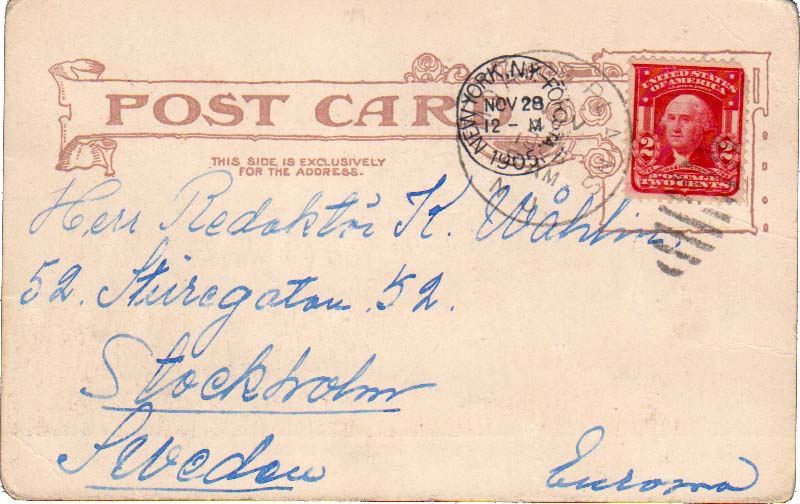 POST CARD
THIS SIDE IS EXCLUSIVELY
FOR THE ADDRESS.
NEW YORK, N.Y.
NOV 28
12 - M
1905
UNITED STATES
OF AMERICA
2 2
WASHINGTON
POSTAGE
TWO CENTS
Herr Redaktör K. Wåhlin,
52. Sturegatan. 52.
Stockholm
Sweden
Europa